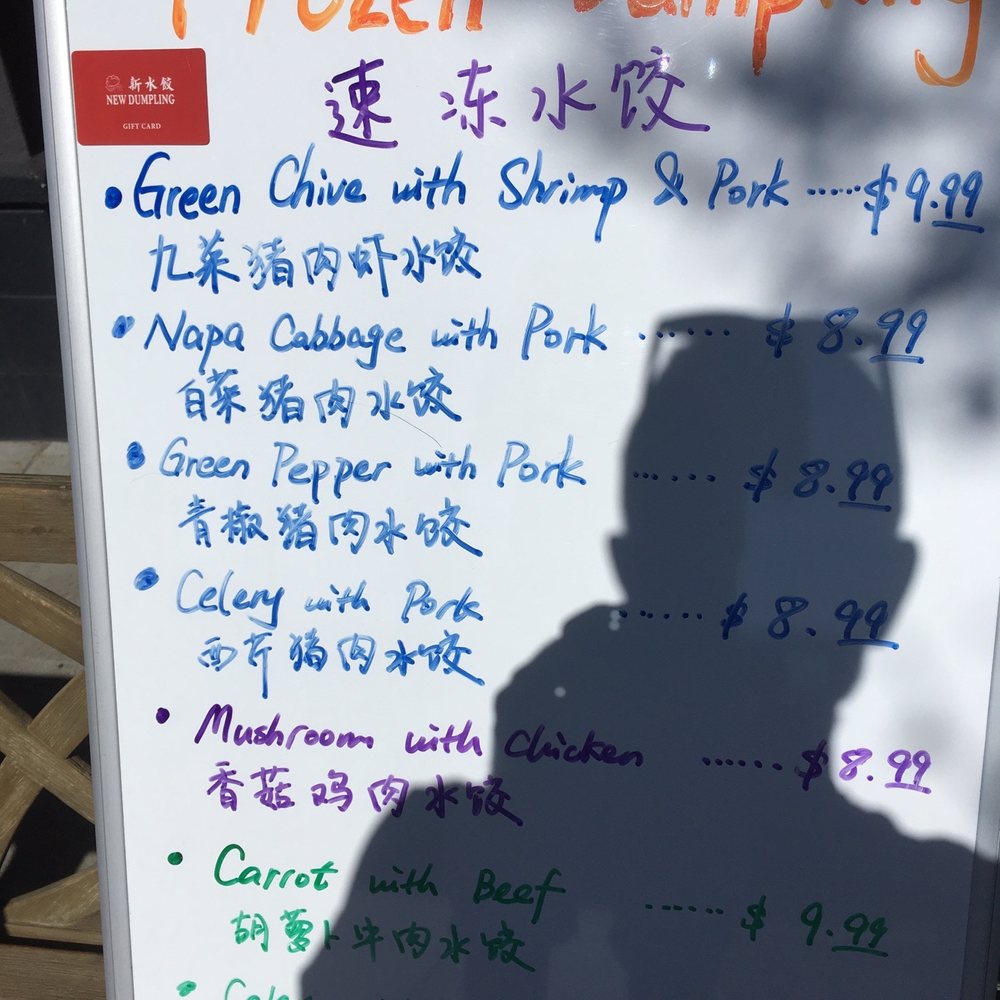 Frozen Dumpling
新水饺
NEW DUMPLING
GIFT CARD
速冻水饺
• Green Chive with Shrimp & Pork ······ $9.99
九菜猪肉虾水饺
• Napa Cabbage with Pork ······ $8.99
白菜猪肉水饺
• Green Pepper with Pork ······ $8.99
青椒猪肉水饺
• Celery with Pork ······ $8.99
西芹猪肉水饺
• Mushroom with Chicken ······ $8.99
香菇鸡肉水饺
• Carrot with Beef ······ $9.99
胡萝卜牛肉水饺